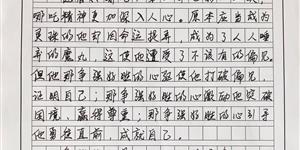 哪吒精神更加深入人心。原本应当成为
灵珠的他却因命运捉弄,成为了人人唾
弃的魔丸,这使他遭受了不该有的偏见。
但他那争强好胜的心驱使他打破偏见,
证明自己;那争强好胜的心激励他突破
困境、赢得尊重;那争强好胜的心引导
他勇往直前,成就自己。